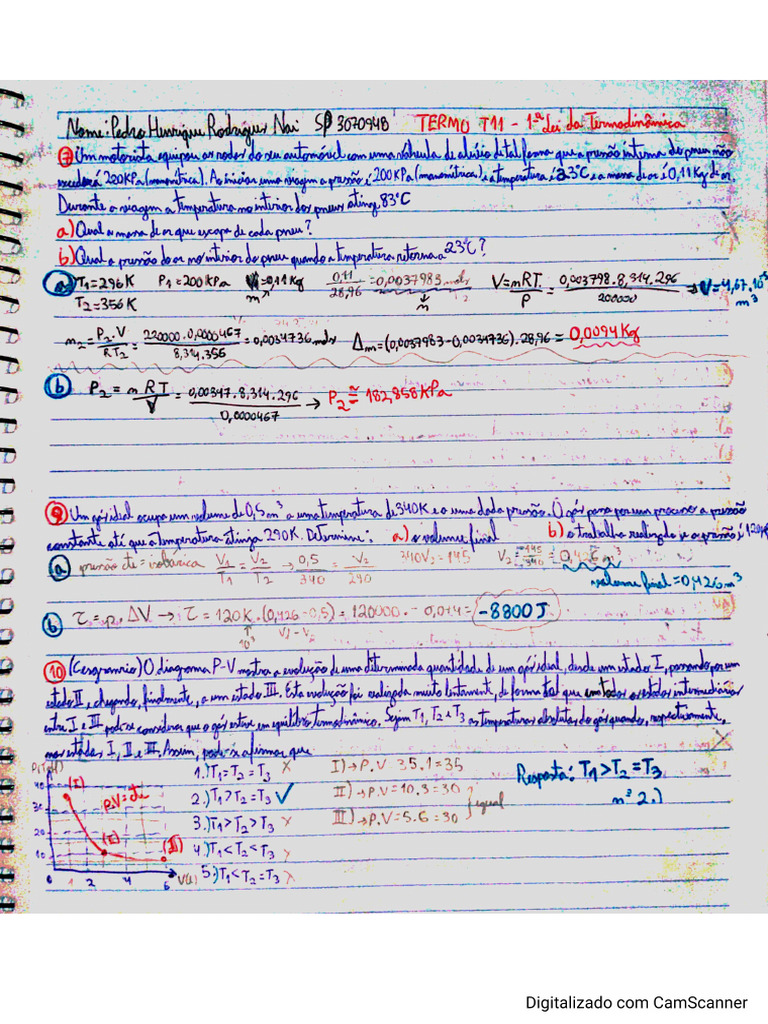 Nome: Pedro Henrique Rodrigues Nai SP 3070948 TERMO T11 - 1ª Lei da Termodinâmica
7) Um motorista equipou as rodas do seu automóvel com uma válvula de alívio de tal forma que a pressão interna dos pneus não
excederá 220KPa (manométrica). Ao iniciar uma viagem a pressão é 200KPa (manométrica) e a temperatura é 23°C e a massa de ar é 0,11 Kg de ar.
Durante a viagem a temperatura no interior dos pneus atinge 83°C
a) Qual a massa de ar que escapa de cada pneu?
b) Qual a pressão do ar no interior do pneu quando a temperatura retorna a 23°C?
a) T1 = 296K P1 = 200KPa m = 0,11Kg 0,11/28,96 = 0,0037983 mols V = nRT/P = 0,003798.8,314.296/200000 → V = 4,67.10⁻⁵ m³
T2 = 356K
n2 = P2.V/RT2 = 220000.0,0000467/8,314.356 = 0,0034736 mols Δm = (0,0037983 - 0,0034736).28,96 = 0,0094Kg
b) P2 = nRT/V = 0,00347.8,314.296/0,0000467 → P2 ≅ 182,858KPa
9) Um gás ideal ocupa um volume de 0,5m³ a uma temperatura de 340K e a uma dada pressão. O gás passa por um processo a pressão
constante até que a temperatura atinga 290K. Determine: a) o volume final b) o trabalho realizado se a pressão é 120KPa
a) pressão cte = isobárica V1/T1 = V2/T2 → 0,5/340 = V2/290 340V2 = 145 V2 = 145/340 = 0,426 m³
volume final = 0,426m³
b) τ = p.ΔV → τ = 120K.(0,426 - 0,5) = 120000. - 0,074 = -8800J
10³ Vf - Vi
10) (Cesgranrio) O diagrama P-V mostra a evolução de uma determinada quantidade de um gás ideal, desde um estado I, passando por um
estado II e chegando, finalmente, a um estado III. Esta evolução foi realizada muito lentamente, de forma tal que em todos os estados intermediários
entre I e III pode-se considerar que o gás esteve em equilíbrio termodinâmico. Sejam T1, T2 e T3 as temperaturas absolutas do gás quando, respectivamente,
nos estados I, II e III. Assim, pode-se afirmar que
1.) T1 = T2 = T3 × I) → P.V 35.1 = 35 Resposta: T1 > T2 = T3
2.) T1 > T2 = T3 ✓ II) → P.V = 10.3 = 30 igual nº 2.)
3.) T1 > T2 > T3 × III) → P.V = 5.6 = 30
4.) T1 < T2 < T3 ×
5.) T1 < T2 = T3 ×
40 (I) P.V = cte
30
20 (II) (III)
10
0 2 4 6 V(l)
Digitalizado com CamScanner